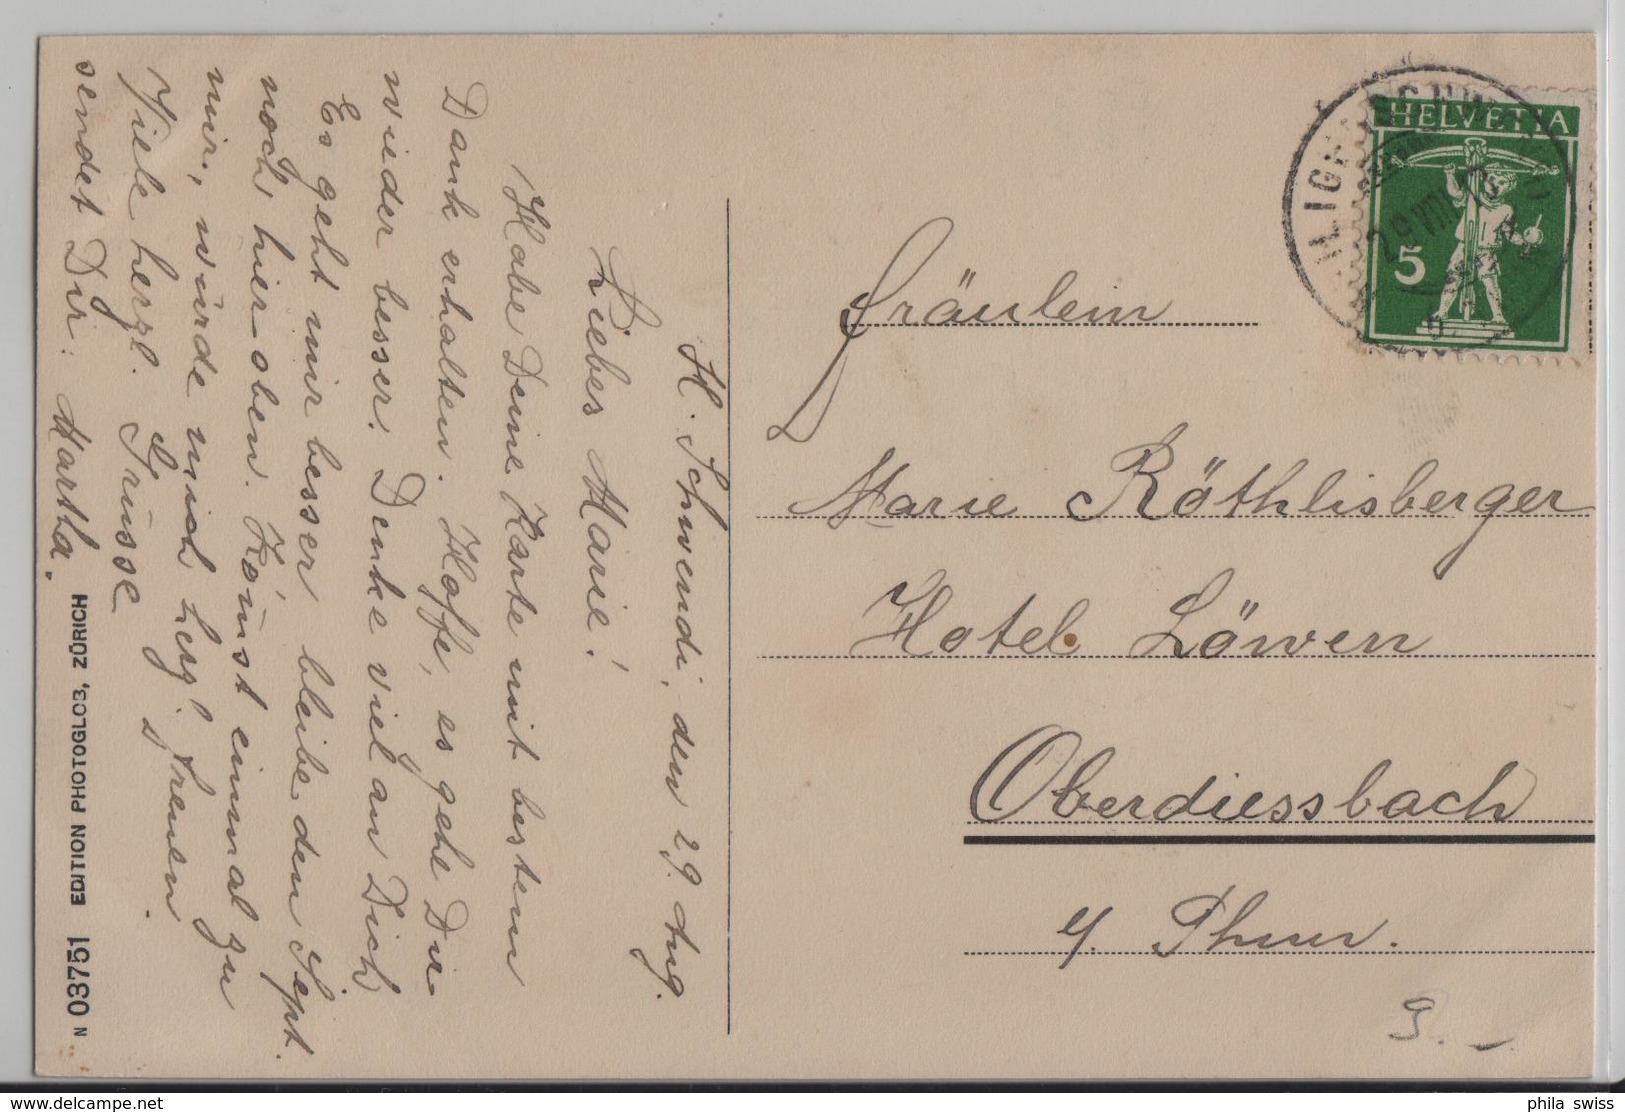 H. Schwendi, den 29. Aug.
Liebes Marie!
Habe Deine Karte mit bestem
Dank erhalten. Hoffe, es gehe Dir
wieder besser. Denke viel an Dich
Es geht mir besser bleibe den Sept.
noch hier oben. Könnst einmal zu
mir, würde mich herzl. freuen.
Viele herzl. Grüsse
sendet Dir: Martha.
N 03751 EDITION PHOTOGLOB, ZÜRICH
HELVETIA
5
29 VIII
Fräulein
Marie Röthlisberger
Hotel Löwen
Oberdiessbach
b/ Thun.
9.-
phila swiss